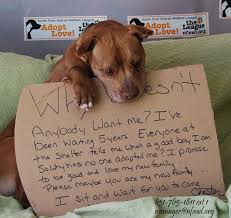 North Fork Animal Welfare League
Adopt Love!
the League
nfawl.org
Adopt Love!
Why Doesn't
Anybody Want me? I've
been Waiting 5 years. Everyone at
the Shelter tells me what a good boy I am
So Why has no one adopted me? I promise
to be good and love my new family
Please maybe you are my new family...
I sit and Wait for you to come
631-765-1811 ext 1
manager@nfawl.org